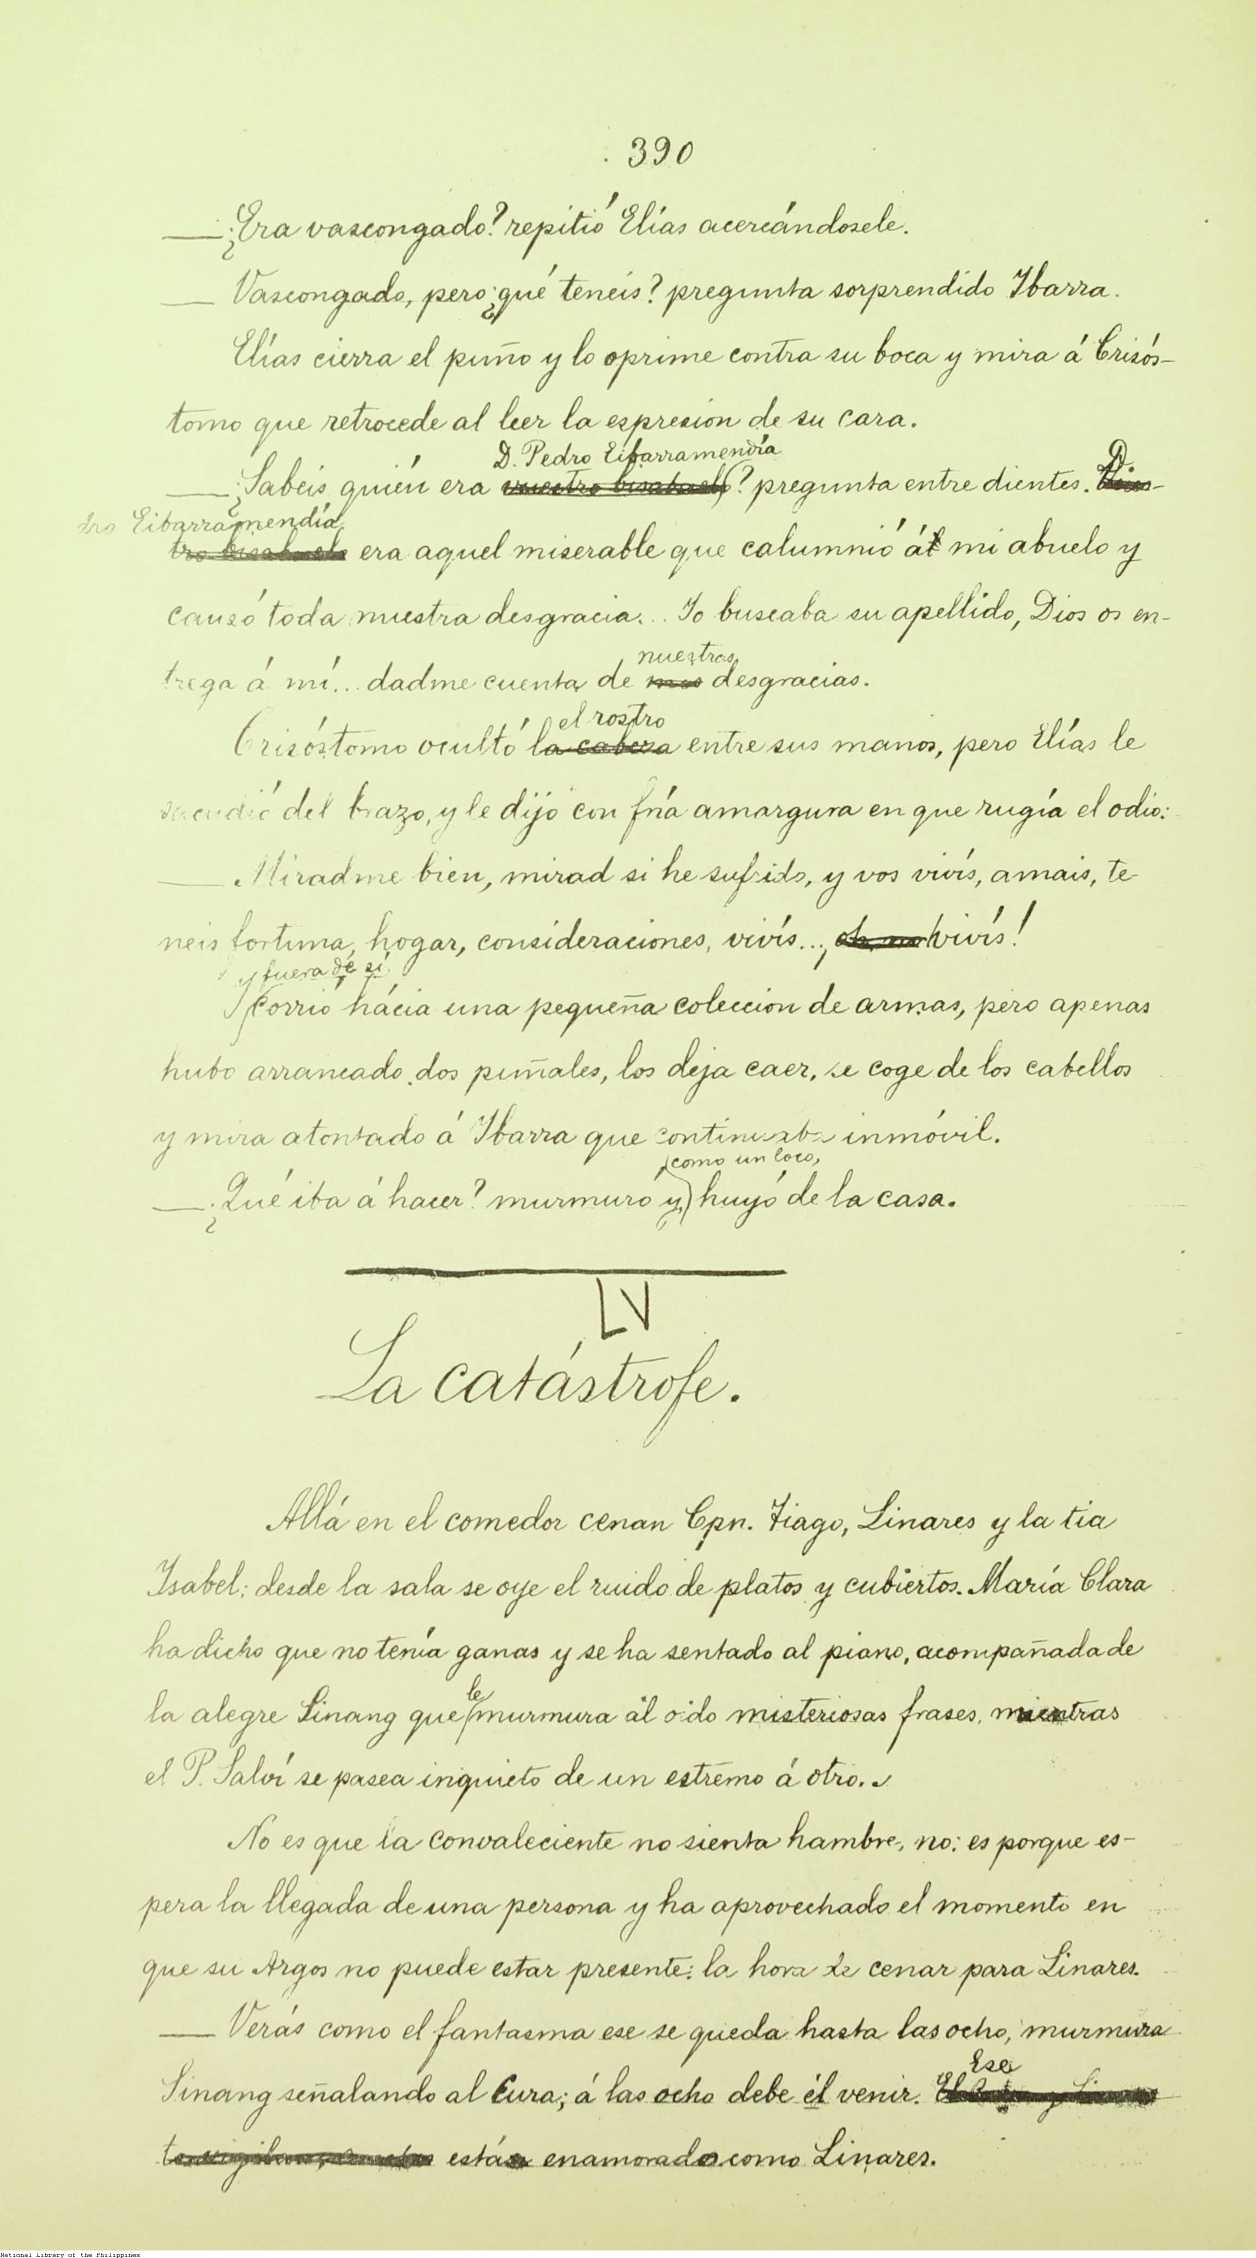 390
— ¿Era vascongado? repitió Elías acercándosele.
— Vascongado, pero ¿qué teneis? pregunta sorprendido Ibarra.
Elías cierra el puño y lo oprime contra su boca y mira á Crisós-
tomo que retrocede al leer la espresion de su cara.
D. Pedro Eibarramendía
— ¿Sabeis quién era vuestro bisabuelo? pregunta entre dientes. D
dro Eibarramendía
tro bisabuelo era aquel miserable que calumnió á mi abuelo y
causó toda nuestra desgracia... Yo buscaba su apellido, Dios os en-
nuestras
trega á mí... dadme cuenta de mis desgracias.
el rostro
Crisóstomo ocultó la cabeza entre sus manos, pero Elías le
sacudió del brazo, y le dijo con fría amargura en que rugía el odio:
— Miradme bien, mirad si he sufrido, y vos vivís, amais, te
neis fortuna, hogar, consideraciones, vivís..., vivís!
y fuera de sí
corrió hácia una pequeña coleccion de armas, pero apenas
hubo arrancado dos puñales, los deja caer, se coge de los cabellos
y mira atontado á Ibarra que continuaba inmóvil.
como un loco,
— ¿Qué iba á hacer? murmuró y, huyó de la casa.
LV
La catástrofe.
Allá en el comedor cenan Cpn. Tiago, Linares y la tia
Isabel; desde la sala se oye el ruido de platos y cubiertos. María Clara
ha dicho que no tenía ganas y se ha sentado al piano, acompañada de
le
la alegre Sinang que murmura al oido misteriosas frases, mientras
el P. Salví se pasea inquieto de un estremo á otro.
No es que la convaleciente no sienta hambre, no: es porque es-
pera la llegada de una persona y ha aprovechado el momento en
que su Argos no puede estar presente: la hora de cenar para Linares.
— Verás como el fantasma ese se queda hasta las ocho, murmura
Ese
Sinang señalando al Cura; á las ocho debe él venir.
está enamorado como Linares.
National Library of the Philippines